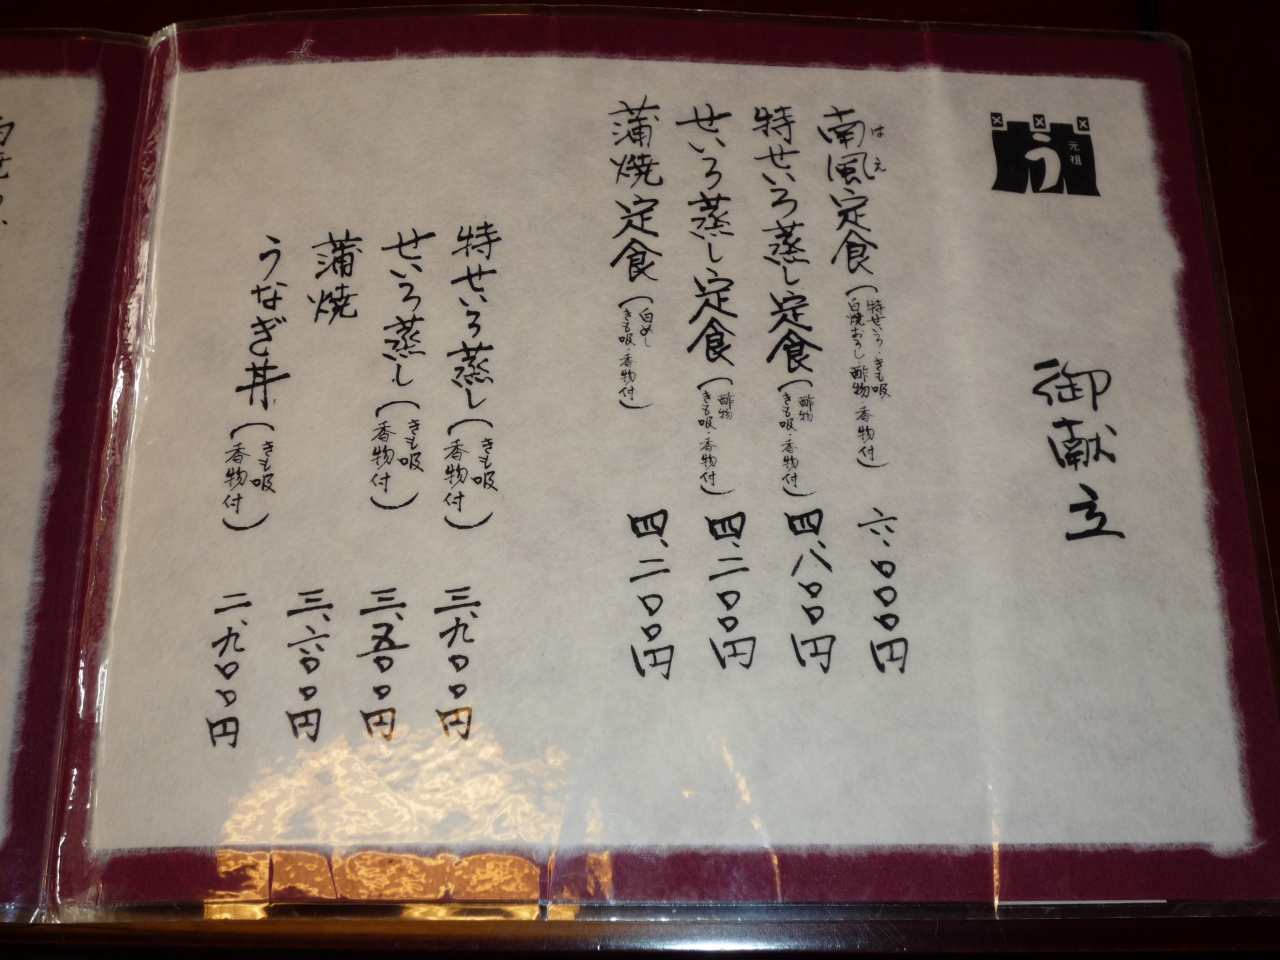 元祖
う
御献立
南風定食(特せいろ・きも吸
はえ
白焼おろし・酢物・香物付) 六、〇〇〇円
特せいろ蒸し定食(酢物
きも吸・香物付) 四、八〇〇円
せいろ蒸し定食(酢物
きも吸・香物付) 四、二〇〇円
蒲焼定食(白めし
きも吸・香物付) 四、二〇〇円
特せいろ蒸し(きも吸
香物付) 三、九〇〇円
せいろ蒸し(きも吸
香物付) 三、五〇〇円
蒲焼 三、六〇〇円
うなぎ丼(きも吸
香物付) 二、九〇〇円